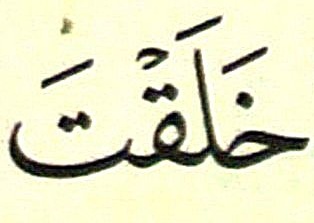 خَلَقْتَ